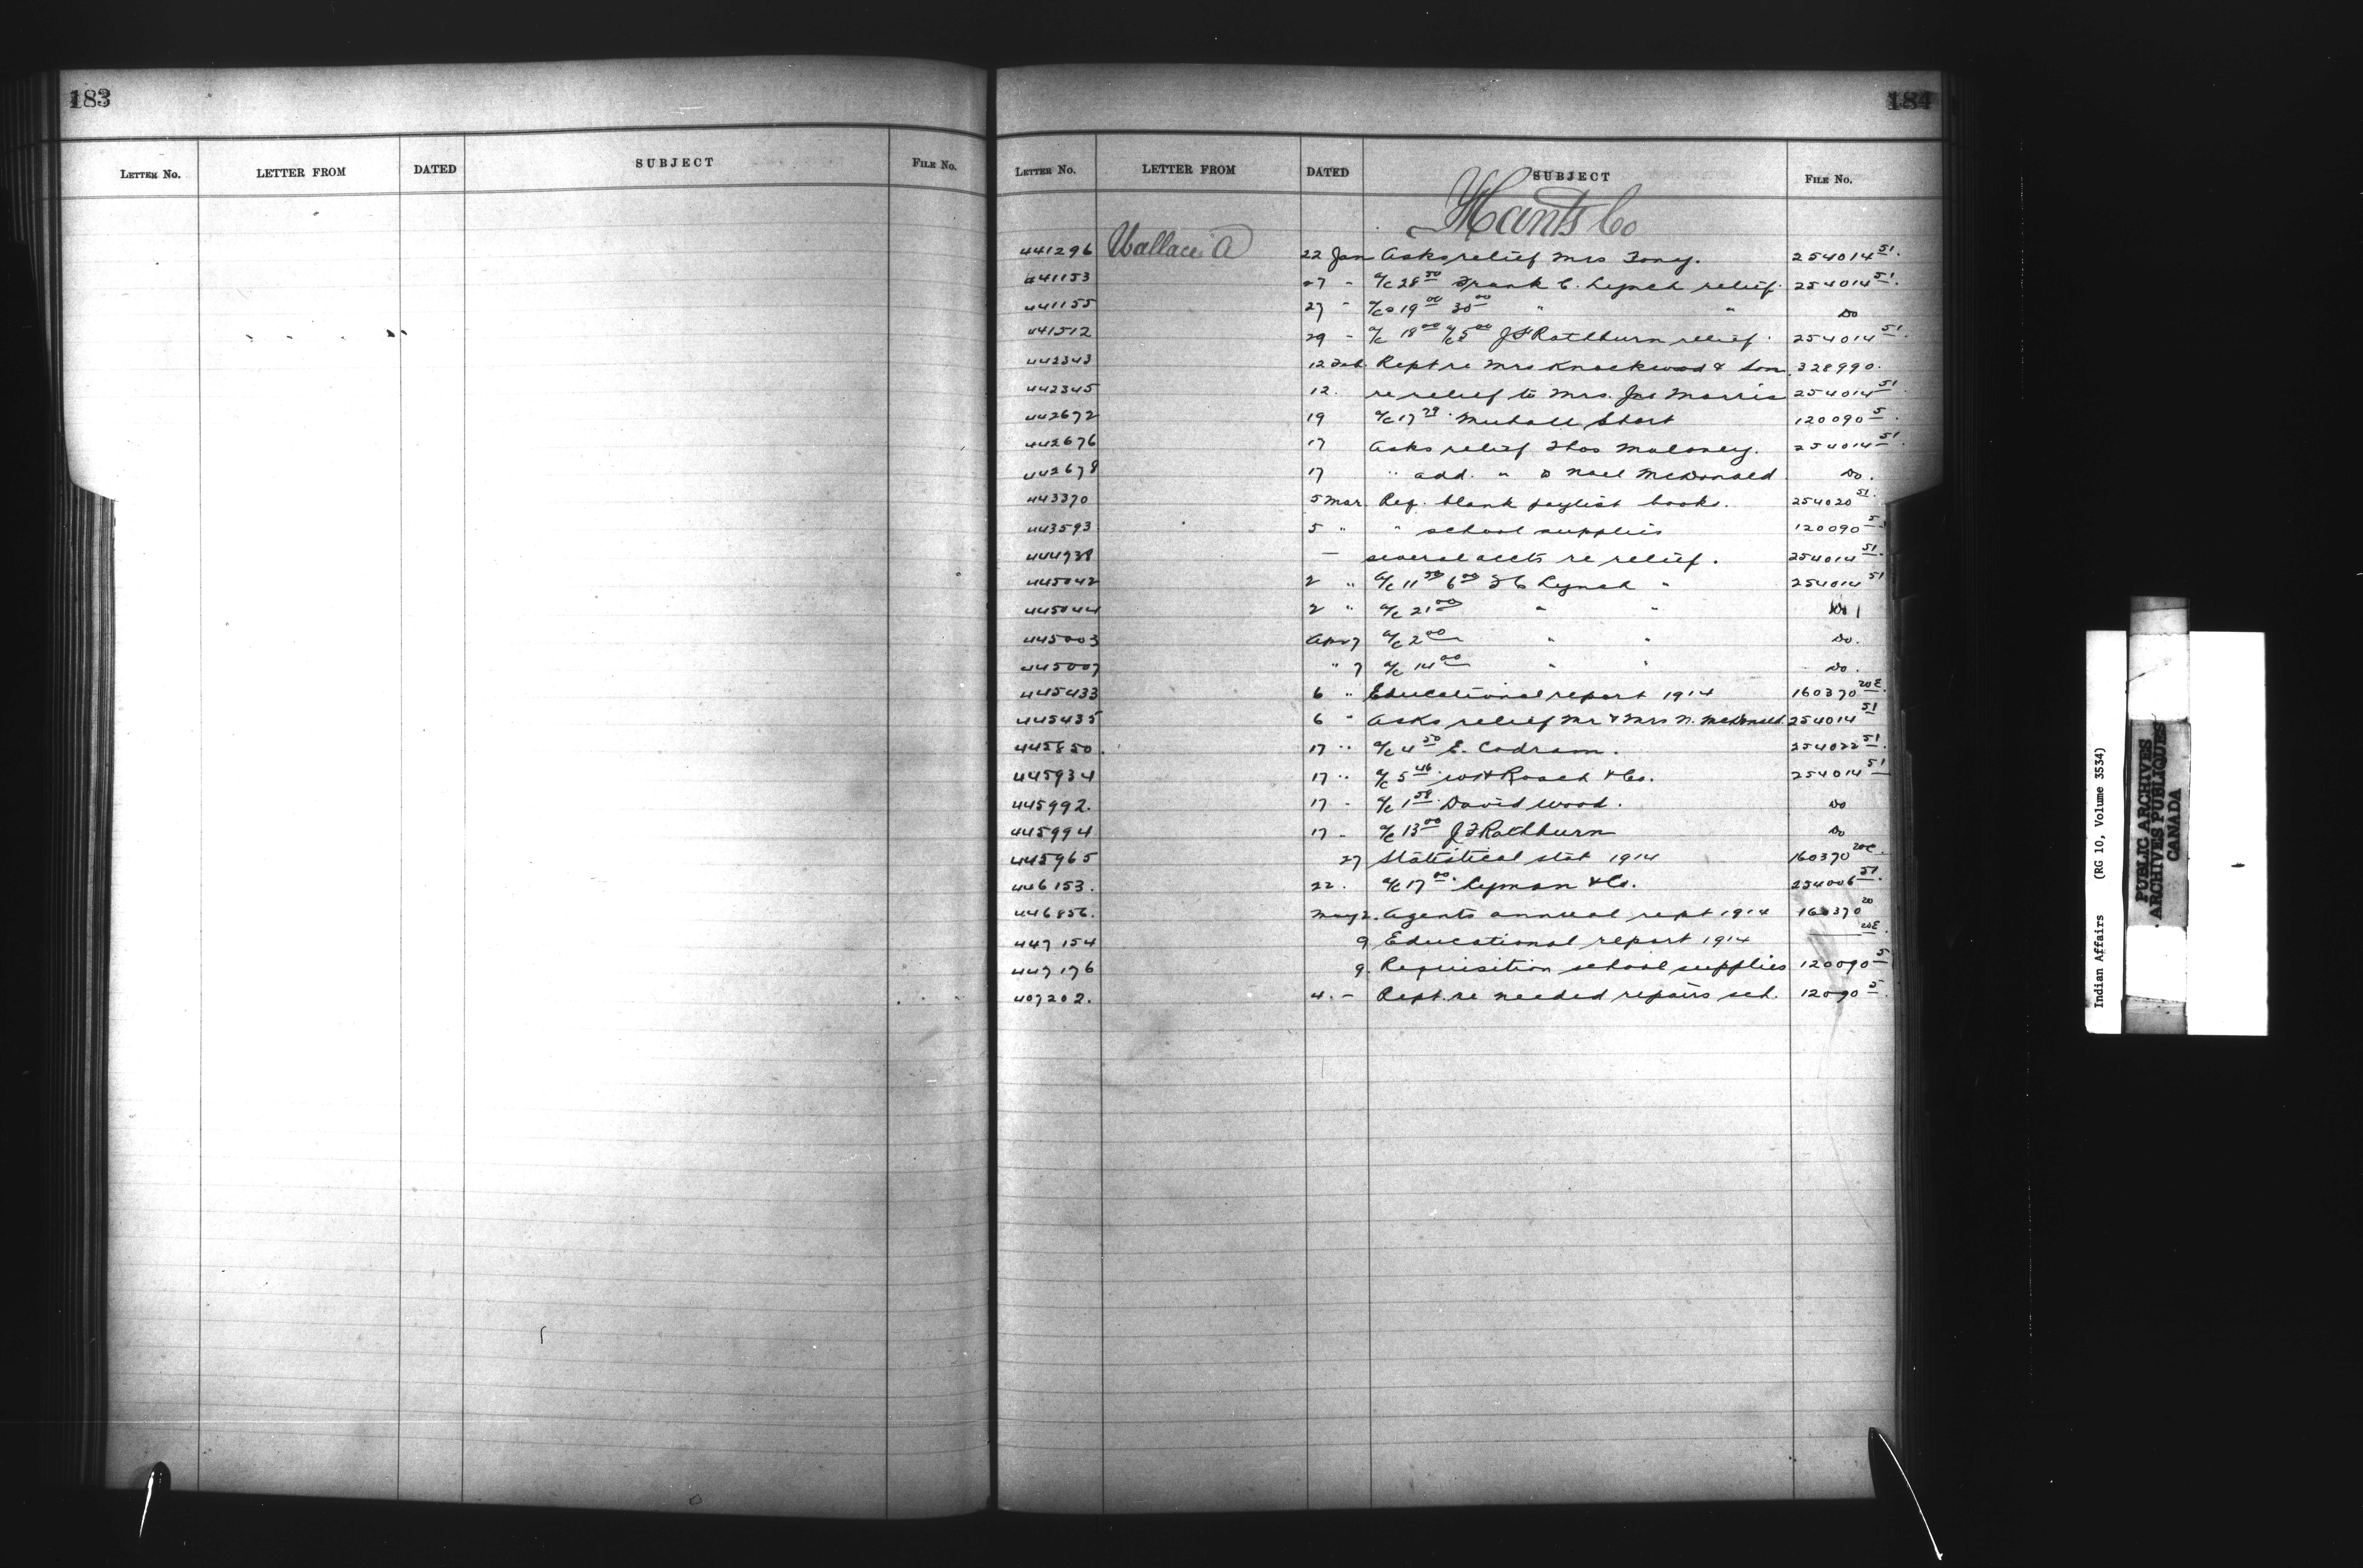 183
LETTER NO. LETTER FROM DATED SUBJECT FILE NO.
184
LETTER NO. LETTER FROM DATED SUBJECT FILE NO.
Hants Co
441296 Wallace A 22 Jan Asks relief Mrs Tony. 254014 51.
441153 27 " a/c 28 50 Frank C. Lynch relief. 254014 51.
441155 27 " a/cs 19 00 30 00 " " Do
441512 29 " a/c 18 00 a/c 5 00 J F Rathburn relief. 254014 51.
442343 12 Feb. Rept re Mrs Knockwood & Son. 328990.
442345 12. re relief to Mrs. Jas Morris 254014 51.
442672 19 a/c 17 Short 120090 5.
442676 17 Asks relief Thos Maloney. 254014 51.
442678 17 " add. " Noel McDonald. Do.
443370 5 Mar. Req. blank paylist books. 254020 51.
443593 5 " " school supplies 120090 5.
444938 — several accts re relief. 254014 51.
445042 2 " a/c 11 50 6 00 F C Lynch " 254014 51
445044 2 " a/c 21 00 " " Do
445003 Apr 7 a/c 2 00 " " Do.
445007 " 7 a/c 14 00 " " Do.
445433 6 " Educational report 1914 160370 20E.
445435 6 " Asks relief Mr & Mrs N. McDonald. 254014 51
445850. 17 " a/c 4 50 E. Codram. 254022 51.
445934 17 " a/c 5 46 W H Roach & Co. 254014 51
445992. 17 " a/c 1 58 David Wood. Do
445994 17 " a/c 13 00 J F Rathburn Do
445965 27 Statistical stat 1914 160370 20C.
446153. 22. a/c 17 00. Lyman & Co. 254006 51.
446856. May 2. Agents annual rept 1914 160370 20
447154 9 Educational report 1914 20E.
447176 9. Requisition school supplies 120090 5
407202. 4. — Rept. re needed repairs sch. 12090 5.
Indian Affairs (RG 10, Volume 3534)
PUBLIC ARCHIVES
ARCHIVES PUBLIQUES
CANADA